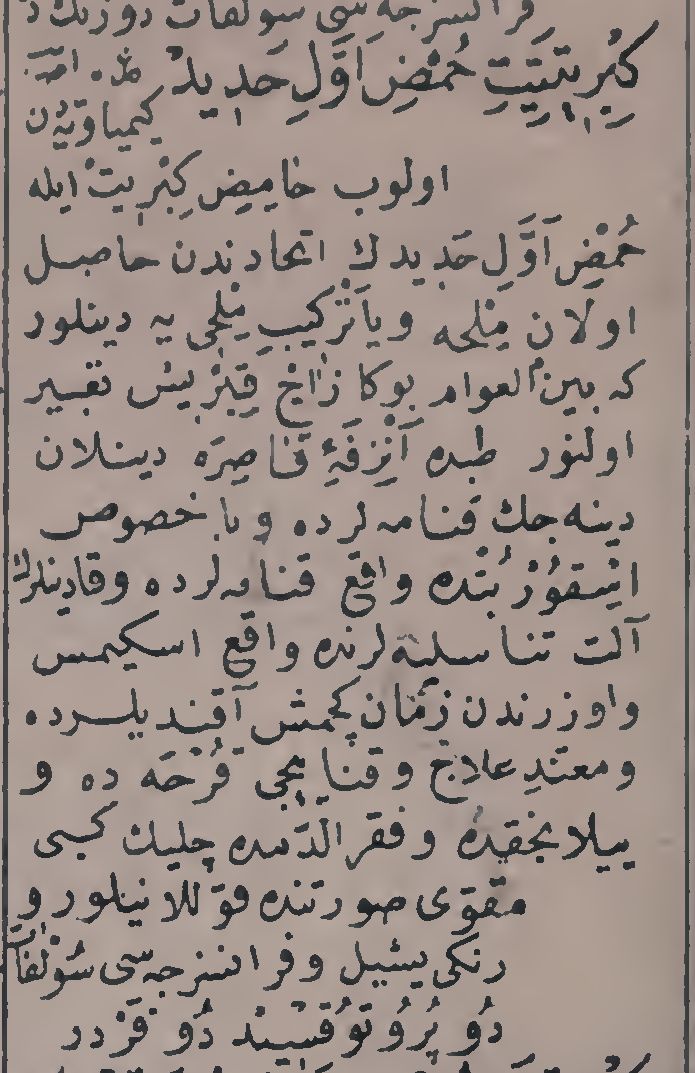 فرانسزجه سی سولفات دوزنك د
كِبْرِيتِيَّتِ حُمْضِ اَوَّلِ حَدِيدْ
كيمياويّه دن
اولوب حامِضِ كِبْرِيتْ ايله
حُمْضِ اَوَّلِ حَدِيدك اتحادندن حاصل
اولان مِلحه ويا تَرْكيبِ مِلحى يه دينلور
كه بين العوام بوكا زاجِ قِبْرِيسْ تعبير
اولنور طبده اَنْزِفَهِٔ قَاصِرَه دينلان
دينه جك قنامه لرده وبا خصوص
اِسْقوُرْبُتْده واقع قنامه لرده وقادينلرك
آلت تناسليه لرنده واقع اسكيمس
واوزرندن زَمان كچمش آقنديلرده
ومعتدِ علاج وقنايجى قَرْحَه ده و
ييلانجقده وفقر الدّمده چليك كبى
مقوّى صورتنده قوللانيلور و
رنكى يشيل وفرانسزجه سى سُولْفاتْ
دُو پْرُوتوُقسِيد دُو فَرْدر